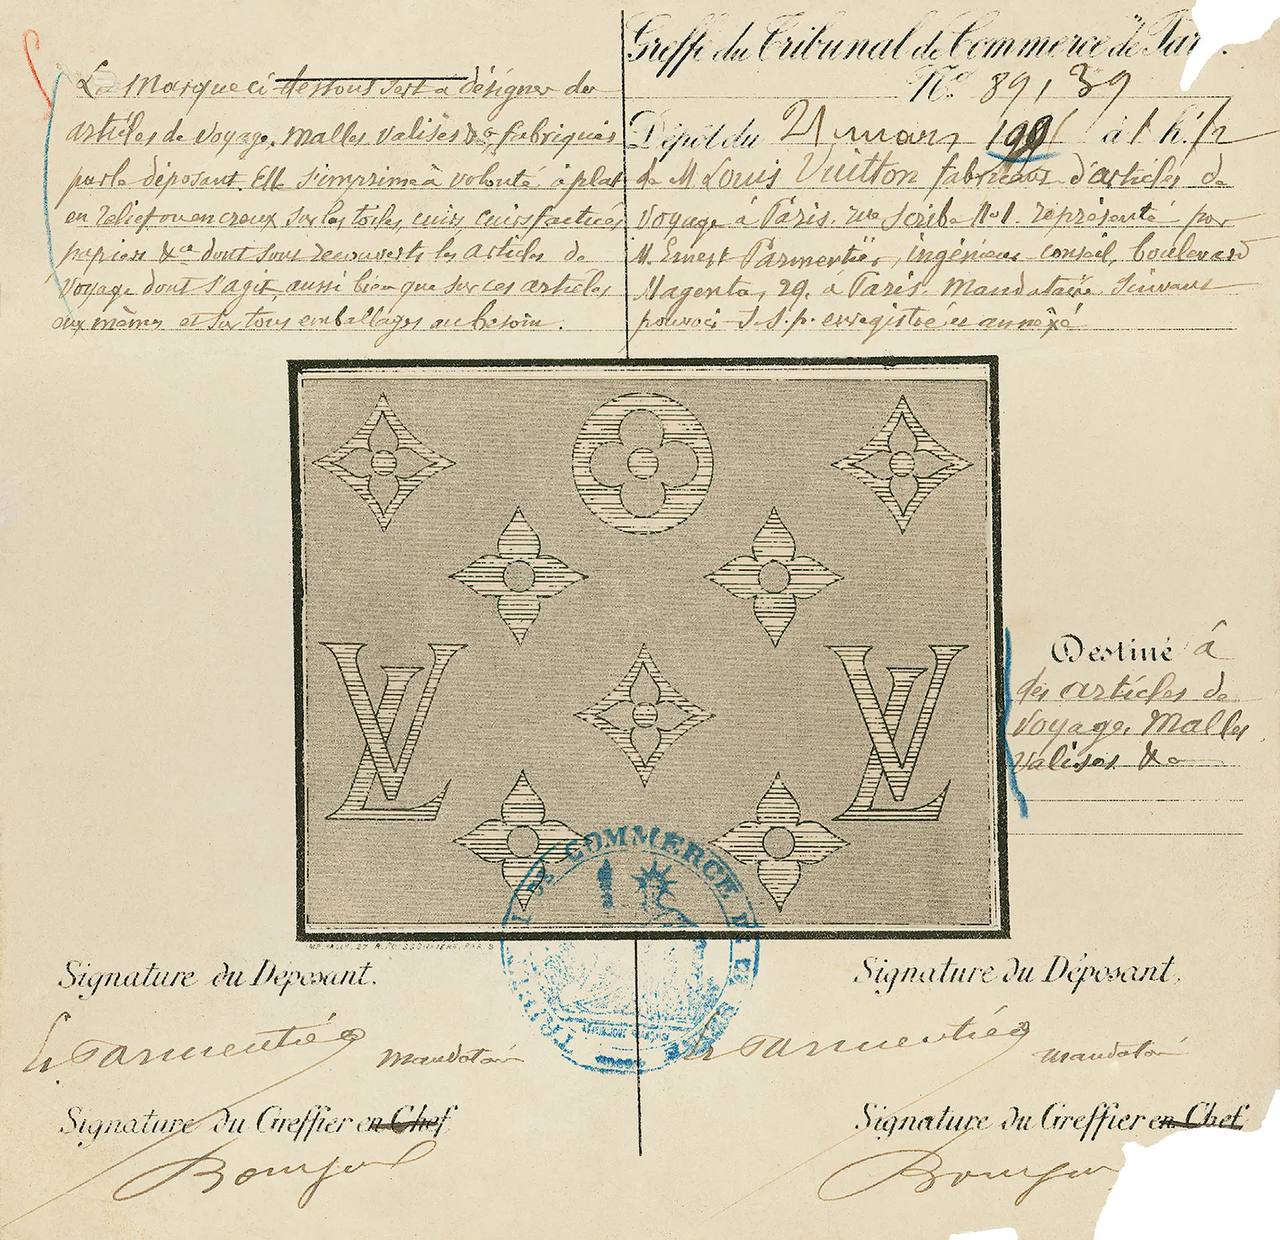 La Marque ci dessous sert a désigner des
articles de voyage, malles valises &a, fabriqués
par le déposant. Elle s'imprime à volonté à plat
en relief ou en creux sur les toiles, cuirs, cuirs factices
papiers &a dont sont recouverts les articles de
voyage dont s'agit, aussi bien que sur ces articles
eux mêmes et sur tous emballages au besoin.
Greffe du Tribunal de Commerce de Par
No 89,139
Dépôt du 21 mars à 1 h. 1/2
de M Louis Vuitton fabricant d'articles de
voyage à Paris. rue Scribe No 1. représenté par
M. Ernest Parmentier, ingénieur conseil, boulevard
Magenta, 29. à Paris. Mandataire suivant
pouvoir s.s.p. enregistré et annexé
LV
LV
Destiné à
des articles de
voyage, Malles
valises &a
COMMERCE DE LA SEINE
Signature du Déposant.
E. Parmentier mandataire
Signature du Greffier en Chef
Signature du Déposant.
E. Parmentier mandataire
Signature du Greffier en Chef